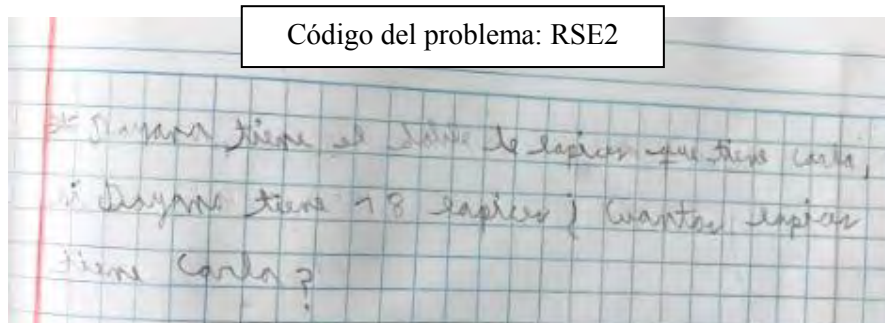 Código del problema: RSE2
* Dayana tiene el doble de lapices que tiene Carla,
si Dayana tiene 18 lapices ¿ Cuantos lapices
tiene Carla?